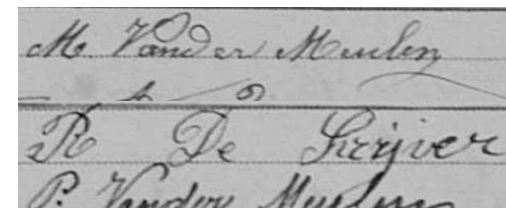 M. Vander Meulen
R De Schrijver
P. Vander Meulen